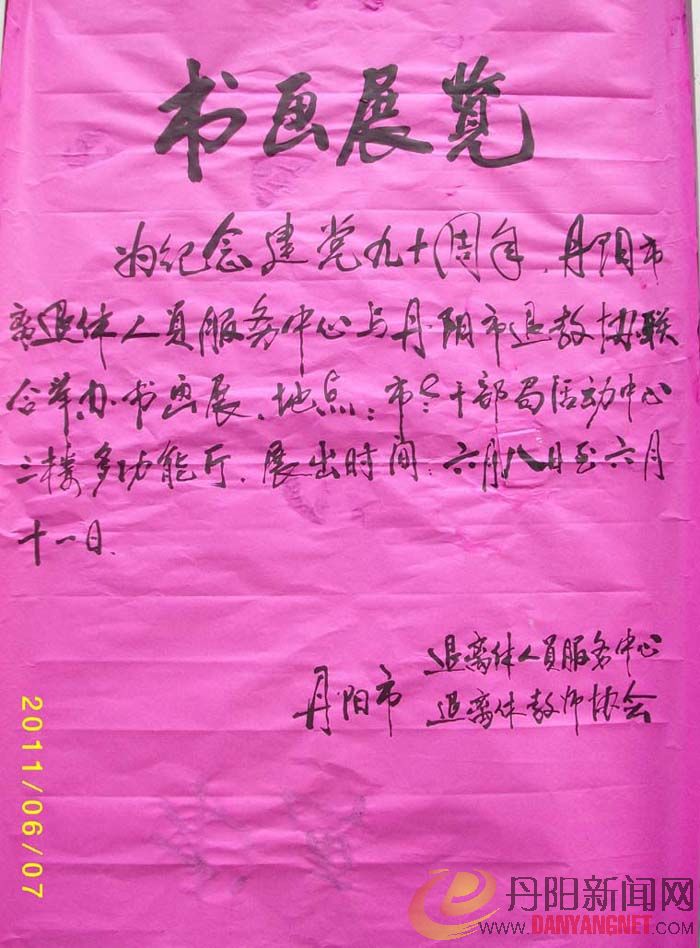 书画展览
为纪念建党九十周年、丹阳市
离退休人员服务中心与丹阳市退教协联
合举办书画展、地点：市老干部局活动中心
三楼多功能厅、展出时间：六月八日至六月
十一日、
退离休人员服务中心
丹阳市
退离休教师协会
2011/06/07
丹阳新闻网
www.DANYANGNET.com